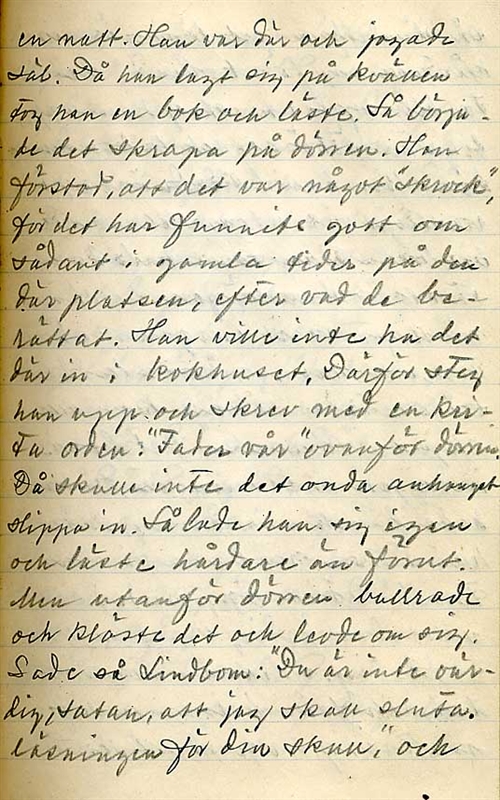 en natt. Han var där och jagade
säl. Då han lagt sig på kvällen
tog han en bok och läste. Så börja-
de det skrapa på dörren. Han
förstod, att det var något "skrock",
för det har funnits gott om
sådant i gamla tider på den
där platsen, efter vad de be-
rättat. Han ville inte ha det
där in i kokhuset. Därför steg
han upp och skrev med en kri-
ta orden: "Fader vår" ovanför dörren.
Då skulle inte det onda anhanget
slippa in. Så lade han sig igen
och läste hårdare än förut.
Men utanför dörren bullrade
och klöste det och levde om sig.
Sade så Lindbom: "Du är inte vär-
dig, satan, att jag skall sluta
läsningen för din skull," och